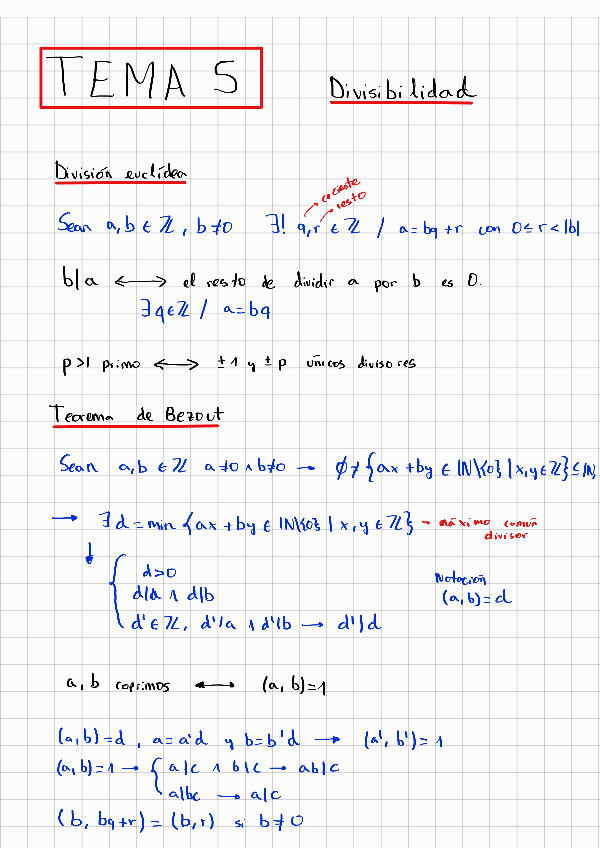 TEMA 5
Divisibilidad
División euclídea
cociente
resto
Sean a, b ∈ ℤ, b ≠ 0 ∃! q, r ∈ ℤ / a = bq + r con 0 ≤ r < |b|
b|a ⟷ el resto de dividir a por b es 0.
∃ q ∈ ℤ / a = bq
p > 1 primo ⟷ ±1 y ±p únicos divisores
Teorema de Bezout
Sean a, b ∈ ℤ a ≠ 0 ∧ b ≠ 0 → ∅ ≠ {ax + by ∈ ℕ\{0} | x, y ∈ ℤ} ⊆ ℕ
→ ∃ d = min {ax + by ∈ ℕ\{0} | x, y ∈ ℤ} → máximo común
divisor
↓
d > 0
d|a ∧ d|b
d' ∈ ℤ, d'|a ∧ d'|b → d'|d
Notación
(a, b) = d
a, b coprimos ⟷ (a, b) = 1
(a, b) = d, a = a'd y b = b'd → (a', b') = 1
(a, b) = 1 → { a|c ∧ b|c → ab|c
a|bc → a|c
(b, bq + r) = (b, r) si b ≠ 0